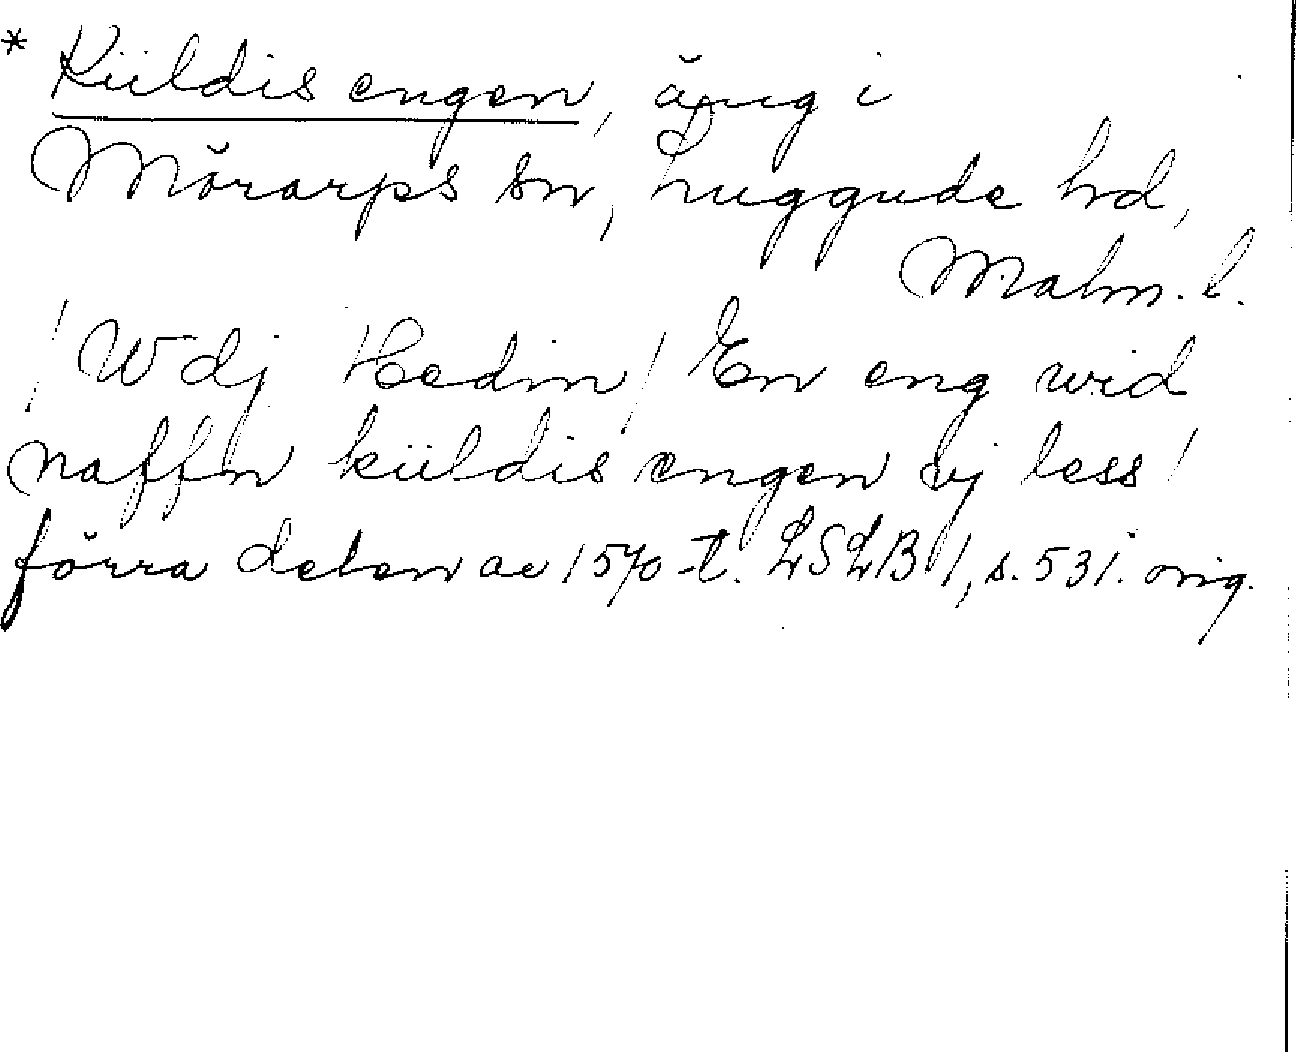 * Küldis engen, äng i
Mörarps sn, Luggude hd,
Malm. l.
/Wdj Hedin/ En eng wid
naffn küldis engen vj less/
förra delen av 1570-t. LSLB 1, s. 531. orig.